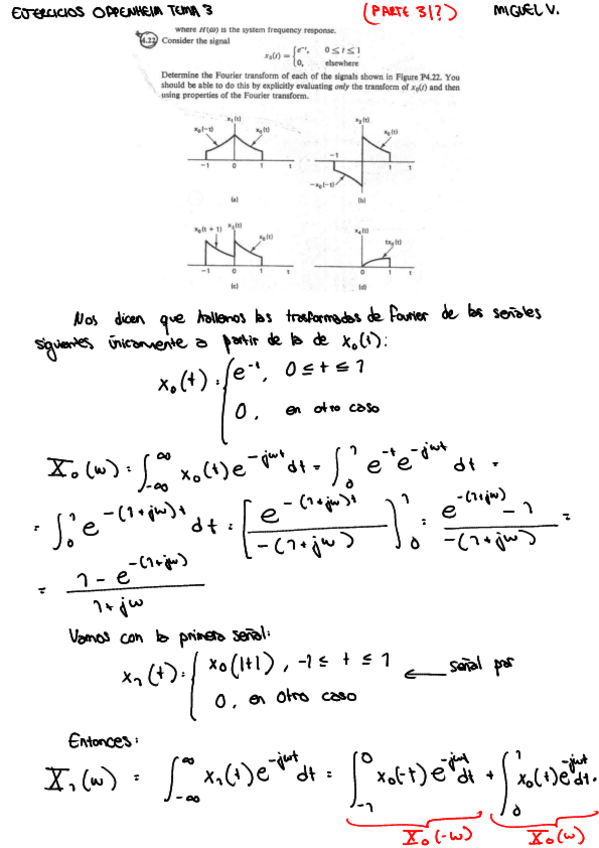 EJERCICIOS OPPENHEIM TEMA 3 (PARTE 31?) MIGUEL V.
where H(ω) is the system frequency response.
4.22 Consider the signal
x₀(t) = { e⁻ᵗ, 0 ≤ t ≤ 1
0, elsewhere
Determine the Fourier transform of each of the signals shown in Figure P4.22. You
should be able to do this by explicitly evaluating only the transform of x₀(t) and then
using properties of the Fourier transform.
x₁(t) x₂(t)
x₀(-t) x₀(t) x₀(t)
-1 0 1 t -1 0 1 t
-x₀(-t)
(a) (b)
x₀(t + 1) x₃(t) x₀(t) x₄(t) tx₀(t)
-1 0 1 t 0 1 t
(c) (d)
Nos dicen que hallemos las trasformadas de Fourier de las señales
siguientes únicamente a partir de la de x₀(t):
x₀(t) = { e⁻ᵗ, 0 ≤ t ≤ 1
0, en otro caso
X₀(ω) = ∫_{-∞}^{∞} x₀(t) e^{-jωt} dt = ∫_0^1 e^{-t} e^{-jωt} dt =
= ∫_0^1 e^{-(1+jω)t} dt = [ e^{-(1+jω)t} / -(1+jω) ]_0^1 = (e^{-(1+jω)} - 1) / -(1+jω) =
= (1 - e^{-(1+jω)}) / (1+jω)
Vamos con la primera señal:
x₁(t) = { x₀(|t|), -1 ≤ t ≤ 1 ← señal par
0, en otro caso
Entonces:
X₁(ω) = ∫_{-∞}^{∞} x₁(t) e^{-jωt} dt = ∫_{-1}^0 x₀(-t) e^{-jωt} dt + ∫_0^1 x₀(t) e^{-jωt} dt.
X₀(-ω) X₀(ω)